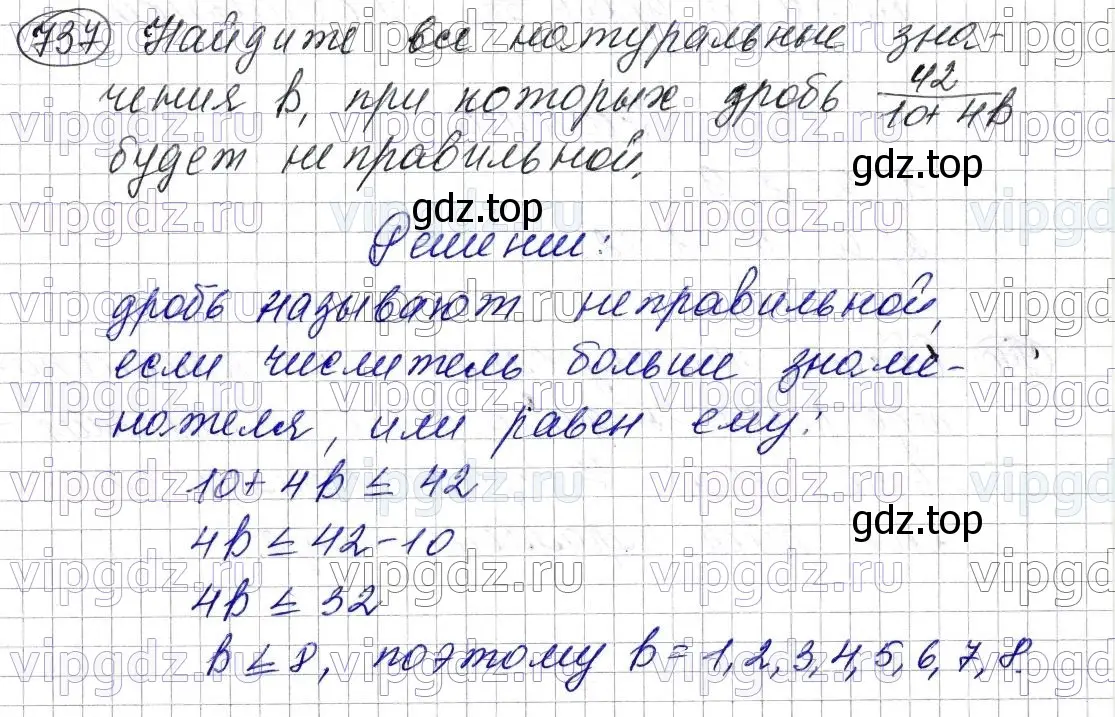 737 Найдите все натуральные зна-
чения b, при которых дробь 42/(10+4b)
будет неправильной.
gdz.top
gdz.top
Решение:
дробь называют неправильной,
если числитель больше знаме-
нателя, или равен ему:
10+4b ≤ 42
4b ≤ 42-10
gdz.top
4b ≤ 32
b ≤ 8, поэтому b = 1, 2, 3, 4, 5, 6, 7, 8.
vipgdz.ru